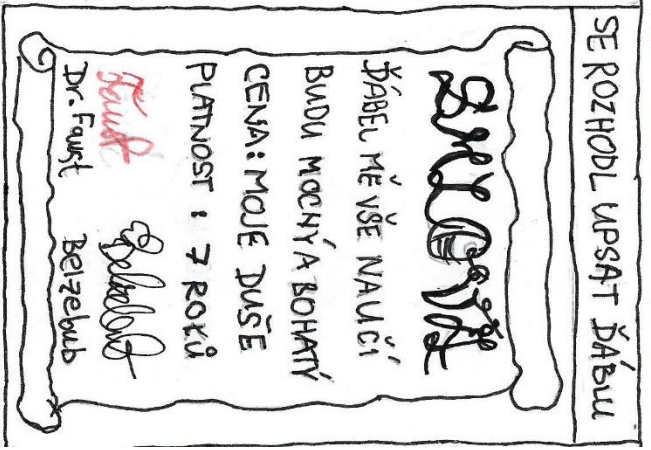 SE ROZHODL UPSAT ĎÁBLU
SMLOUVA
ĎÁBEL MĚ VŠE NAUČÍ
BUDU MOCNÝ A BOHATÝ
CENA: MOJE DUŠE
PLATNOST: 7 ROKŮ
Faust Belzebub
Dr. Faust Belzebub